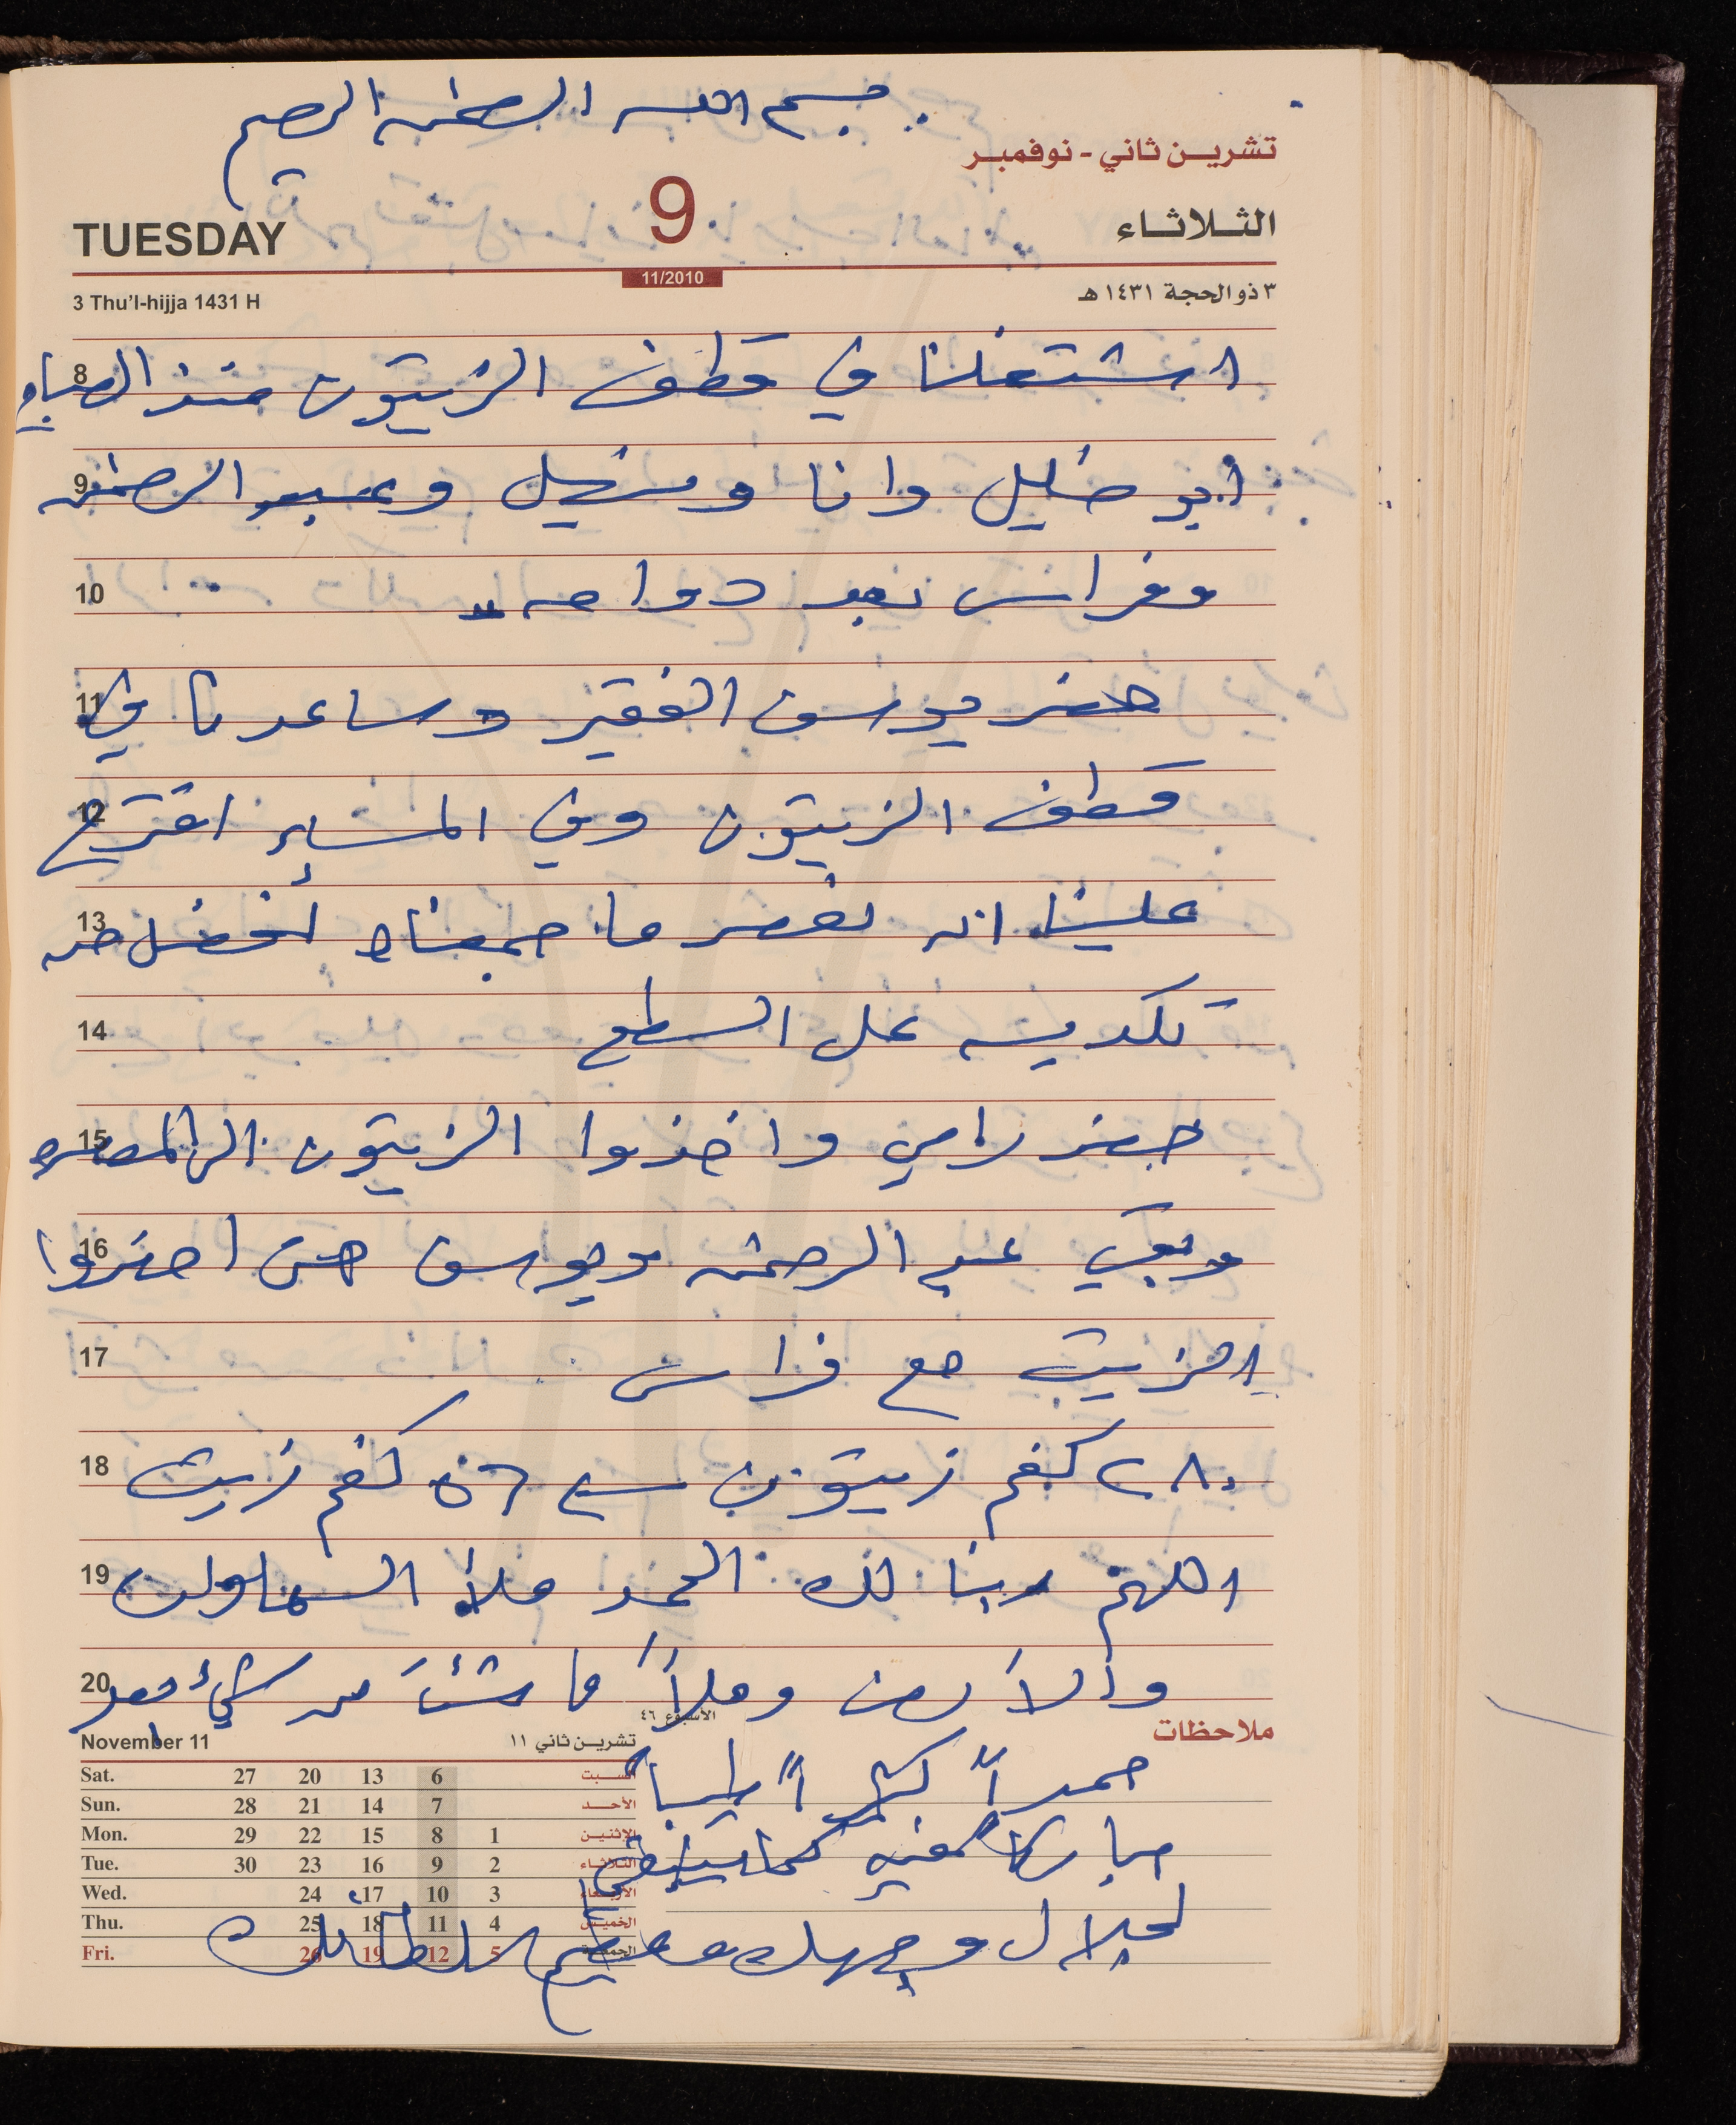 بسم الله الرحمن الرحيم
تشرين ثاني - نوفمبر
TUESDAY 9 الثلاثاء
11/2010
3 Thu'l-hijja 1431 H ٣ ذو الحجة ١٤٣١ هـ
8 اشتغلنا في قطف الزيتون منذ الصباح
9 أبو خليل وانا و وعبد الرحمن
10 وفراس بعد دوامه
11 حضر يوسف الفقير وساعدنا في
12 قطف الزيتون وفي المساء اقترح
13 علينا ان نعصر ما جمعناه أفضل من
14 تكديسه على السطح
15 حضر رامي واخذوا الزيتون الى المعصره
16 وبقي عبد الرحمن ويوسف حتى احضروا
17 الزيت مع فراس
18 ٢٨٠ كغم زيتون كغم زيت
19 اللهم ربنا لك الحمد ملأ السماوات
20 والأرض وملأ ما شئت من شيء بعد
ملاحظات
حمداً كثيراً طيباً
مباركاً فيه كما ينبغي
لجلال وجهك وعظيم سلطانك
الأسبوع ٤٦
November 11 تشرين ثاني ١١
Sat. 27 20 13 6 السبت
Sun. 28 21 14 7 الأحد
Mon. 29 22 15 8 1 الإثنين
Tue. 30 23 16 9 2 الثلاثاء
Wed. 24 17 10 3 الأربعاء
Thu. 25 18 11 4 الخميس
Fri. 26 19 12 5 الجمعة